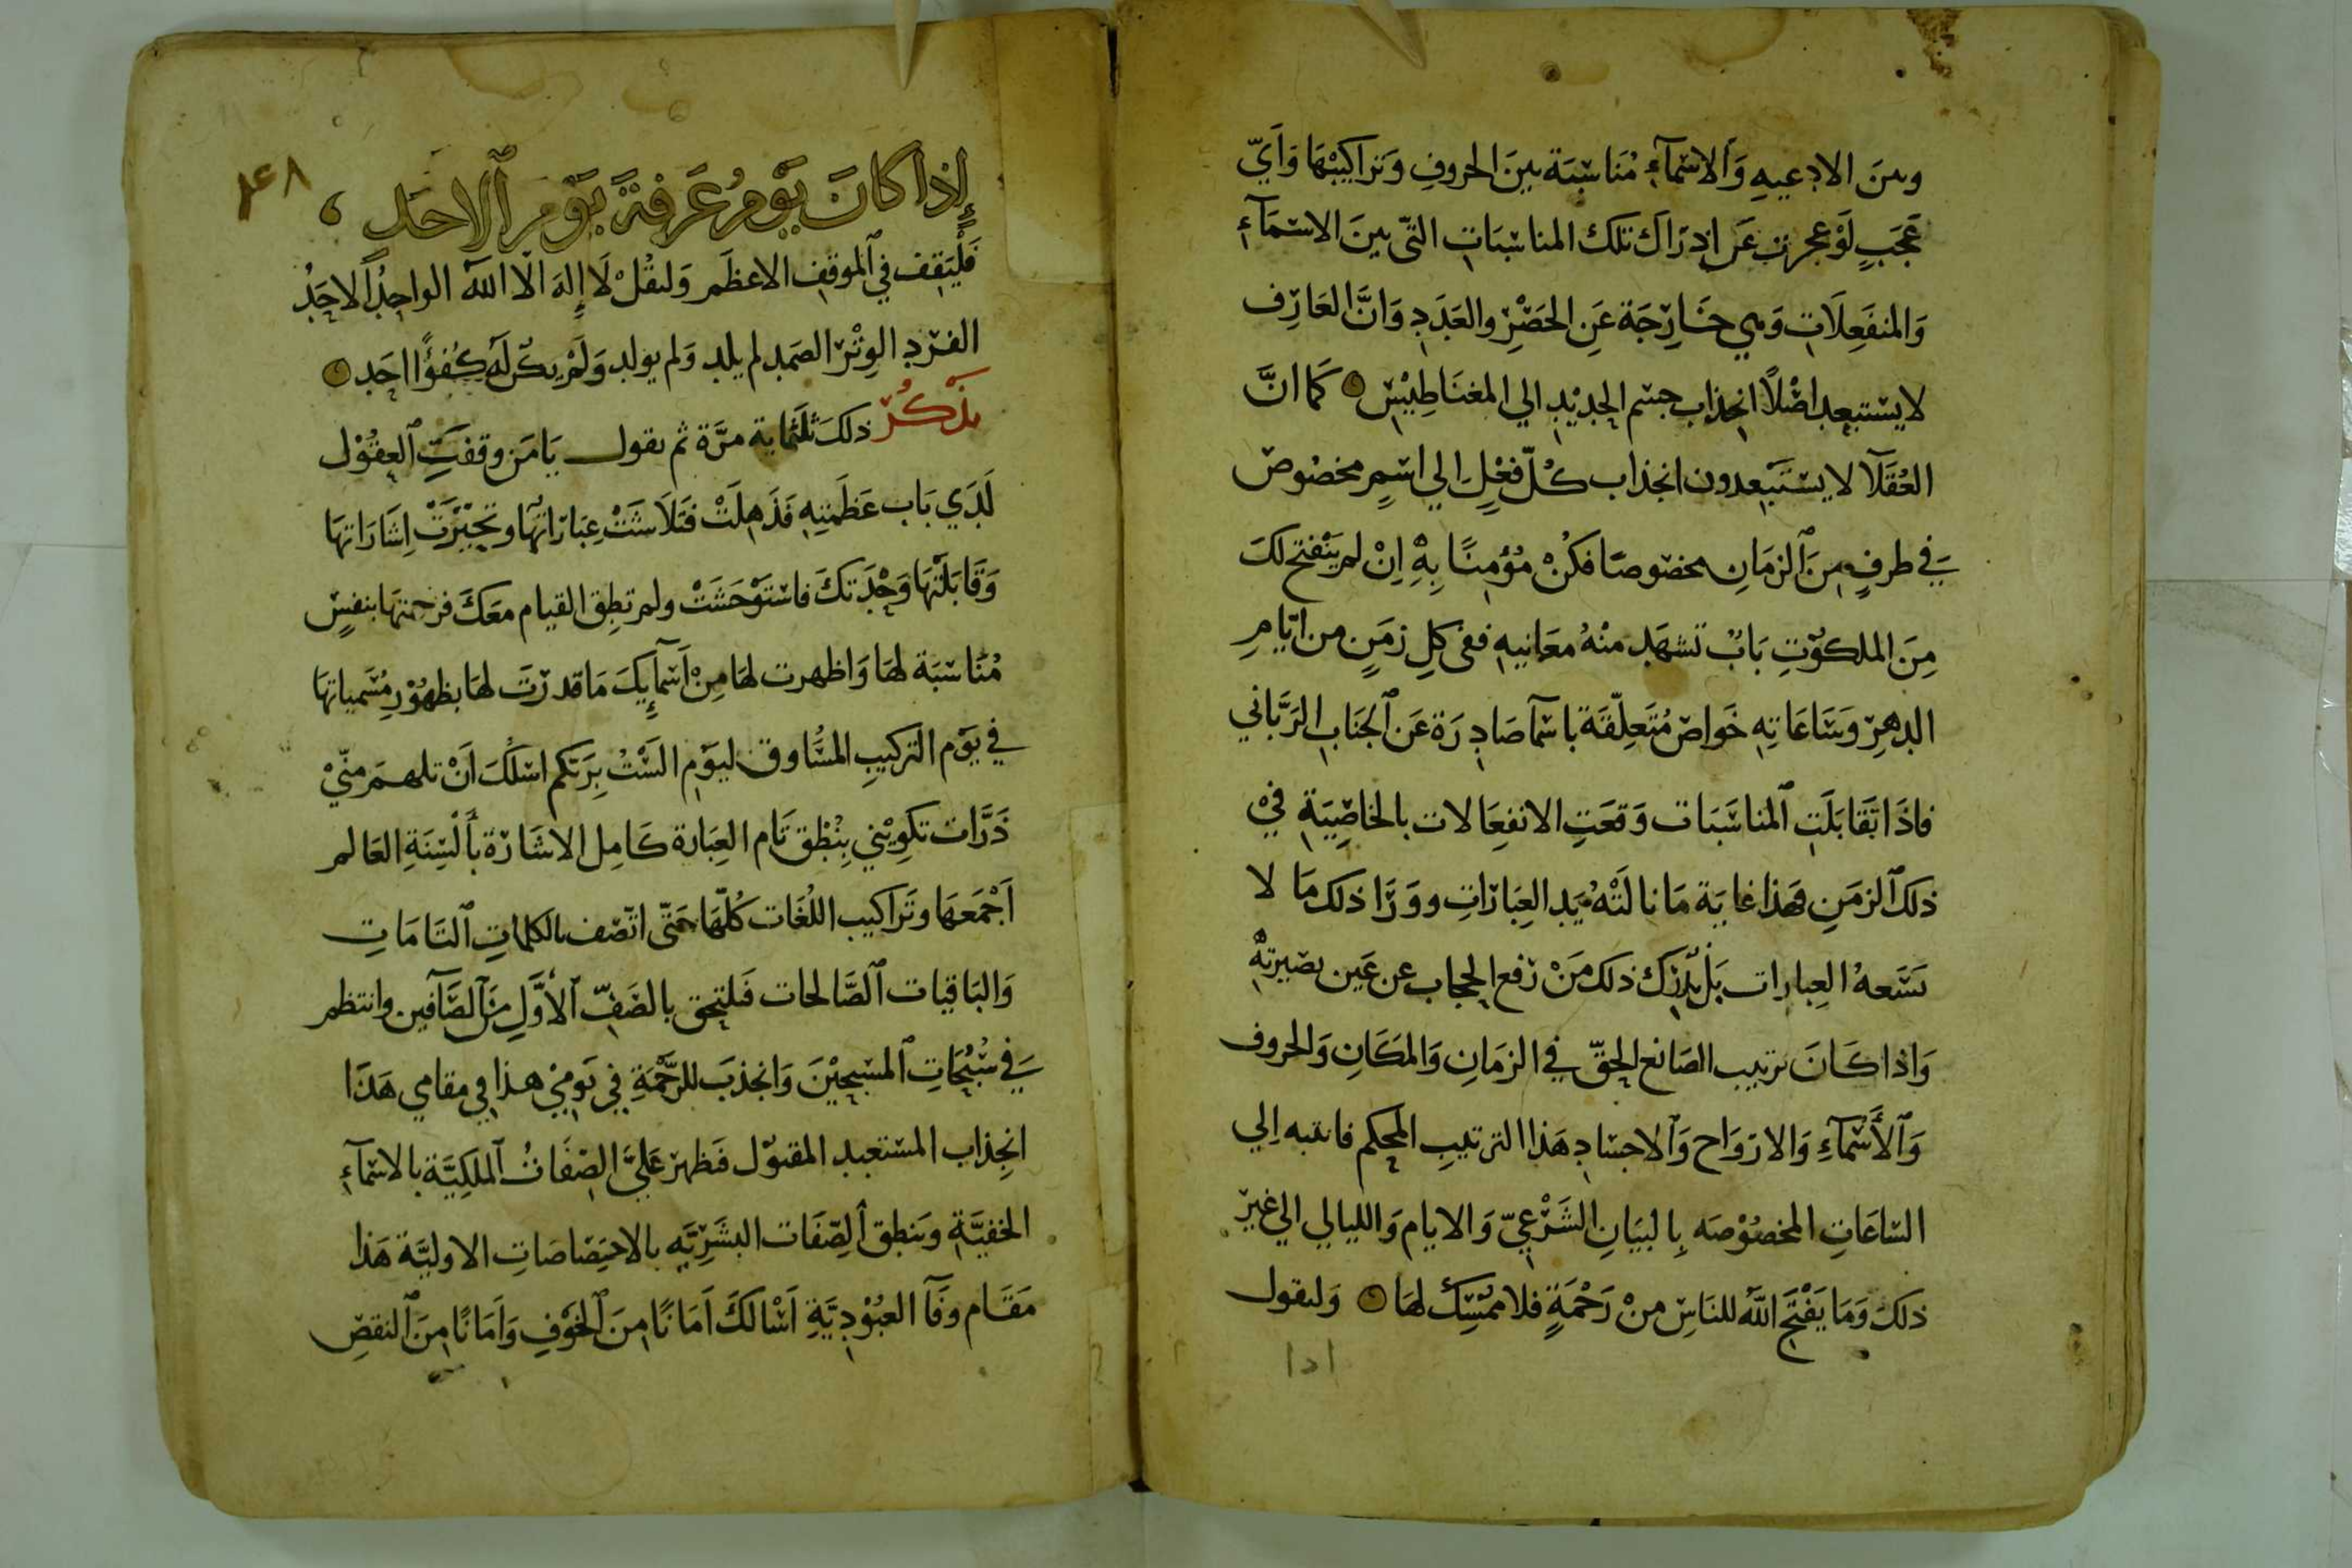 وبين الادعيهِ وَالاسْمآءِ مُنَاسَبَة بينَ الحروفِ وَتراكيبْهَا وَاَيّ
عَجَبٍ لَوْ عجزت عَن اِدرَاكَ تلك المناسَبَاتِ التّى بينَ الاسْمَآءِ
وَالمنفَعِلَاتِ وَهي خَارِجَة عَنِ الحَصْرِ والعَدَدِ وَانَّ العَارِف
لا يسْتبعِد اصْلًا انجِذاب جسْم الحدِيْدِ الي المغنَاطِيْسِ ۞ كَمَا انَّ
العُقَلَآ لا يسْتَبْعِدون انجذاب كُلّ فعْلٍ الي اسْمٍ مخصُوصْ
في طرفٍ مِنَ ٱلزمَانِ مخصُوصًا فكُنْ مُؤْمِنًا بِهِ اِنْ لم يَنْفتح لكَ
مِنَ الملكوْتِ بَابٌ تشهَد منْهُ معَانيهِ ففى كلِ زمَنٍ من ايّامِ
الدهرِ وَسَاعَاتِهِ خَواصْ مُتَعلِّقَة باسْمآ صَادِرَة عَن ٱلجَنَابِ الرَّبَّاني
فاذَا تَقَابَلَتِ ٱلمناسَبَات وَقعَتِ الانفِعَالات بالخاصِّيَةِ فيْ
ذلك ٱلزمَنِ فهَذا غايَة مَا نالَتْهُ يَد العِبَارَاتِ ووَرَا ذلك مَا لا
تسَعهُ العِبارات بَل يُدْرِك ذلك مَنْ رفع الحجاب عن عَين بصيرتهْ
وَاذا كَانَ ترتيب الصَانع الحقّ في الزمَانِ وَالمكَانِ وَالحروف
وَٱلأَسْمَآءِ وَالارْوَاح وَٱلاجسَادِ هَذا الترتيبِ المحكم فانتبه اِلي
السَاعَاتِ المخصُوْصَه بِالبيَانِ الشَرْعيّ وَالايام وَالليالي الي غيرْ
ذلكَ وَمَا يَفْتَحِ اللهُ للنَاسِ منْ رَحْمَةٍ فلا ممْسِكَ لهَا ۞ وَلنقول
١٥١
١٤٨
إِذا كَانَ يَوْمُ عَرفةَ يَوْمَ ٱلاحَد ،
فَلْيَقِف في ٱلموقف الاعظَم وَلنقُلْ لَا إِلهَ الّا الله الواحِدُ الاحَدُ
الفرْد الوِتْرْ الصَمد لم يلد وَلم يولد وَلَمْ يكن لهُ كُفُوًا احَد ۞
يذْكُرْ ذلكَ ثَلَثماية مرَّة ثم يقول يَا مَن وقفَتِ ٱلعقُوْل
لَدَي بَاب عَظَمتِهِ فَذَهلَتْ فتَلَاشَتْ عِبَارَاتهَا وتحيَّرَتْ اِشَارَاتهَا
وَقَابَلتهَا وَحْدَتكَ فاسْتَوْحَشَتْ ولم تطِق القيام معَكَ فرحمتهَا بنفسٍ
مُنَاسَبَة لهَا وَاظهرت لهَا مِنْ اَسْمآئِكَ مَا قدرْتَ لهَا بظهُوْرِ مُسَمياتهَا
في يَوْم التركيبِ المسَاوق ليَوْمِ السْتُ بِرَبّكم اسْلُكَ اَنْ تلهمَ منّيْ
ذَرَّات تكوِيْنِي بِنُطْق تَام العِبَارة كَامِل الاشَارَة بأَلْسِنَةِ العَالم
اَجْمَعهَا وتَراكيب اللغَات كُلّهَا حَتّى اتّصف بالكلماتِ ٱلتَامَاتِ
وَالبَاقيات ٱلصَّالحات فَلتحق بالصَفِّ ٱلأَوَّلِ مِنَ ٱلصَّآفين وانتظم
في سُبُحَاتِ ٱلمسَبحيْنَ وَانجذبَ للرَّحْمَةِ في يَومِيْ هذا في مقامي هَذَا
انجِذاب المسْتعبد المقبوْل فَظهرْ عَليَّ الصِفَاتُ ٱلملَكِيَّة بالاسْمآءِ
الخفيَّةِ وتنطق ٱلصِّفَات البشَرِيَّه بالاختِصَاصَاتِ الاوليَّة هَذا
مَقَام وفَآ العبُوْدِيَّةِ اَسْالكَ اَمَانًا مِنَ ٱلخَوْفِ وَاَمَانًا مِنَ ٱلنقصِ